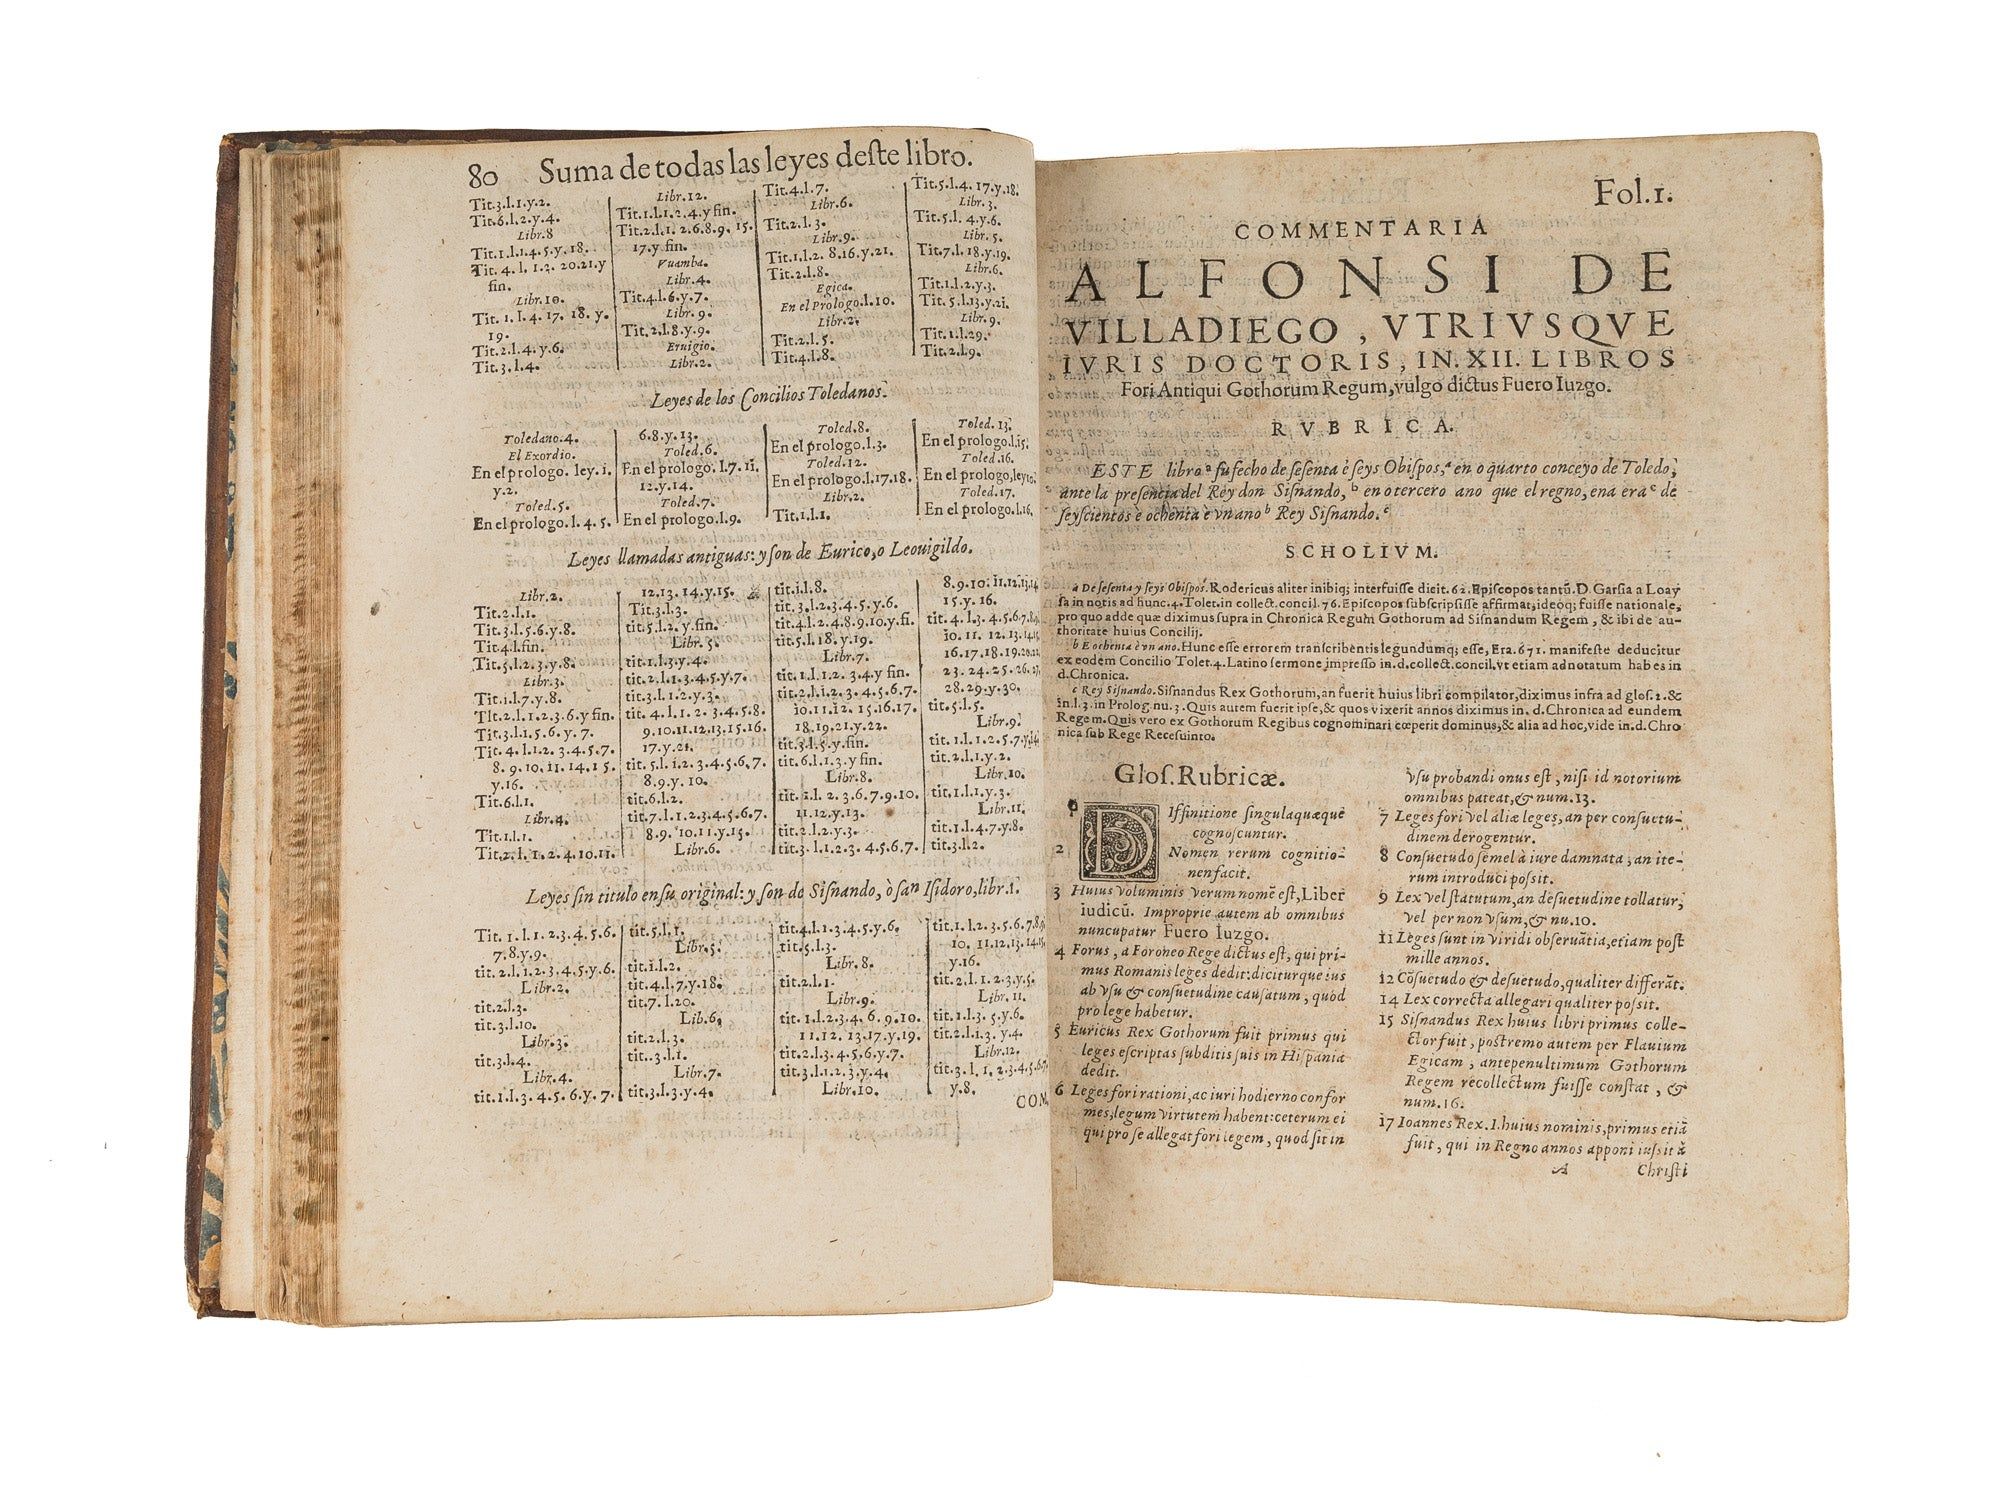 80 Suma de todas las leyes deſte libro.
Tit.3.l.1.y.2.
Tit.6.l.2.y.4.
Libr.8
Tit.1.l.1.4.5.y.18.
Tit.4.l.1.3.20.21.y
fin.
Libr.10.
Tit.1.l.4.17.18.y.
19.
Tit.2.l.4.y.6.
Tit.3.l.4.
Libr.12.
Tit.1.l.1.2.4.y fin.
Tit.2.l.1.2.6.8.9.15.
17.y.fin.
Vuamba.
Libr.4.
Tit.4.l.6.y.7.
Libr.9.
Tit.2.l.8.y.9.
Eruigio.
Libr.2.
Tit.4.l.7.
Libr.6.
Tit.2.l.3.
Libr.9.
Tit.1.l.2.8.16.y.21.
Tit.2.l.8.
Egica.
En el Prologo.l.10.
Libr.2.
Tit.2.l.5.
Tit.4.l.8.
Tit.5.l.4.17.y.18.
Libr.3.
Tit.5.l.4.y.6.
Libr.5.
Tit.7.l.18.y.19.
Libr.6.
Tit.1.l.2.y.3.
Tit.5.l.13.y.21.
Libr.9.
Tit.1.l.29.
Tit.2.l.9.
Leyes de los Concilios Toledanos.
Toledano.4.
El Exordio.
En el prologo.ley.1.
y.2.
Toled.5.
En el prologo.l.4.5.
6.8.y.13.
Toled.6.
En el prologo.l.7.11.
12.y.14.
Toled.7.
En el prologo.l.9.
Toled.8.
En el prologo.l.3.
Toled.12.
En el prologo.l.17.18.
Libr.2.
Tit.1.l.1.
Toled.13.
En el prologo.l.15.
Toled.16.
En el prologo,ley10.
Toled.17.
En el prologo.l.16.
Leyes llamadas antiguas: y ſon de Eurico, o Leouigildo.
Libr.2.
Tit.2.l.1.
Tit.3.l.5.6.y.8.
Tit.4.l.fin.
Tit.5.l.2.3.y.8.
Libr.3.
Tit.1.l.7.y.8.
Tit.2.l.1.2.3.6.y fin.
Tit.3.l.1.5.6.y.7.
Tit.4.l.1.2.3.4.5.7.
8.9.10.11.14.15.
y.16.
Tit.6.l.1.
Libr.4.
Tit.1.l.1.
Tit.2.l.1.2.4.10.11.
12.13.14.y.15.
Tit.3.l.3.
tit.5.l.2.y.fin.
Libr.5.
tit.1.l.3.y.4.
tit.2.l.1.3.4.5.y.7.
tit.3.l.1.2.y.3.
tit.4.l.1.2.3.4.5.8.
9.10.11.12.13.15.16
17.y.21.
tit.5.l.1.2.3.4.5.6.7.
8.9.y.10.
tit.6.l.2.
tit.7.l.1.2.3.4.5.6.7.
8.9.10.11.y.15.
Libr.6.
tit.1.l.8.
tit.3.l.2.3.4.5.y.6.
tit.4.l.2.4.8.9.10.y.fi.
tit.5.l.18.y.19.
Libr.7.
tit.1.l.1.2.3.4.y fin.
tit.2.l.1.2.3.4.5.6.7.
10.11.12.15.16.17.
18.19.21.y.22.
tit.3.l.5.y.fin.
tit.6.l.1.3.y fin.
Libr.8.
tit.1.l.2.3.6.7.9.10.
11.12.y.13.
tit.2.l.2.y.3.
tit.3.l.1.2.3.4.5.6.7.
8.9.10.11.12.13.14
15.y.16.
tit.4.l.3.4.5.6.7.8.
10.11.12.13.14.15
16.17.18.19.20.
23.24.25.26.27.
28.29.y.30.
tit.5.l.5.
Libr.9.
tit.1.l.1.2.5.7.y.14.
tit.2.l.1.y.2.
Libr.10.
tit.1.l.1.y.3.
Libr.11.
tit.1.l.4.7.y.8.
tit.3.l.2.
Leyes ſin titulo en ſu original: y ſon de Siſnando, ò ſan Iſidoro, libr.1.
Tit.1.l.1.2.3.4.5.6.
7.8.y.9.
tit.2.l.1.2.3.4.5.y.6.
Libr.2.
tit.2.l.3.
tit.3.l.10.
Libr.3.
tit.3.l.4.
Libr.4.
tit.1.l.3.4.5.6.y.7.
tit.5.l.1.
Libr.5.
tit.1.l.2.
tit.4.l.7.y.18.
tit.7.l.20.
Lib.6.
tit.2.l.3.
tit.3.l.1.
Libr.7.
tit.3.l.3.y.4.
tit.4.l.1.3.4.5.y.6.
tit.5.l.3.
Libr.8.
tit.2.l.1.
Libr.9.
tit.1.l.2.3.4.6.9.10.
11.12.13.17.y.19.
tit.2.l.3.4.5.6.y.7.
tit.3.l.1.2.3.y.4.
Libr.10.
tit.1.l.2.3.5.6.7.8.9
10.11.12.13.14.15
y.16.
tit.2.l.1.2.3.y.5.
Libr.11.
tit.1.l.3.5.y.6.
tit.2.l.1.3.y.4.
Libr.12.
tit.3.l.1.2.3.4.5.6.7.
y.8.
COM.
Fol.1.
COMMENTARIA
ALFONSI DE
VILLADIEGO, VTRIVSQVE
IVRIS DOCTORIS, IN.XII.LIBROS
Fori Antiqui Gothorum Regum, vulgo dictus Fuero Iuzgo.
RVBRICA.
ESTE libro ª fu fecho de ſeſenta è ſeys Obiſpos, ª en o quarto conceyo de Toledo,
ante la preſencia del Rey don Siſnando, ᵇ en o tercero ano que el regno, en a era ᶜ de
ſeyſcientos è ochenta è vn ano ᵇ Rey Siſnando. ᶜ
SCHOLIVM.
a De ſeſenta y ſeys Obiſpos. Rodericus aliter inibiq; interfuiſſe dicit.62. Epiſcopos tantũ. D. Garſia a Loay
ſa in notis ad hunc.4. Tolet. in collect. concil.76. Epiſcopos ſubſcripſiſſe affirmat; ideoq; fuiſſe nationale,
pro quo adde quæ diximus ſupra in Chronica Regum Gothorum ad Siſnandum Regem, & ibi de au-
thoritate huius Concilij.
b E ochenta è vn ano. Hunc eſſe errorem tranſcribentis legendumq; eſſe, Era.671. manifeſte deducitur
ex eodem Concilio Tolet.4. Latino ſermone impreſſo in.d.collect.concil.vt etiam adnotatum habes in
d.Chronica.
c Rey Siſnando. Siſnandus Rex Gothorum, an fuerit huius libri compilator, diximus infra ad gloſ.2.&
in.l.3.in Prolog.nu.3. Quis autem fuerit ipſe, & quos vixerit annos diximus in.d.Chronica ad eundem
Regem. Quis vero ex Gothorum Regibus cognominari cœperit dominus, & alia ad hoc, vide in.d.Chro
nica ſub Rege Receſuinto.
Gloſ. Rubricæ.
1 DIffinitione ſingulaquæque
cognoſcuntur.
2 Nomen rerum cognitio-
nem facit.
3 Huius voluminis verum nomẽ eſt, Liber
iudicũ. Improprie autem ab omnibus
nuncupatur Fuero Iuzgo.
4 Forus, a Foroneo Rege dictus eſt, qui pri-
mus Romanis leges dedit: diciturque ius
ab vſu & conſuetudine cauſatum, quod
pro lege habetur.
5 Euricus Rex Gothorum fuit primus qui
leges eſcriptas ſubditis ſuis in Hiſpania
dedit.
6 Leges fori rationi, ac iuri hodierno confor
mes, legum virtutem habent: ceterum ei
qui pro ſe allegat fori legem, quod ſit in
vſu probandi onus eſt, niſi id notorium
omnibus pateat, & num.13.
7 Leges fori vel aliæ leges, an per conſuetu-
dinem derogentur.
8 Conſuetudo ſemel à iure damnata, an ite-
rum introduci poſsit.
9 Lex vel ſtatutum, an deſuetudine tollatur,
vel per non vſum, & nu.10.
11 Leges ſunt in viridi obſeruãtia, etiam poſt
mille annos.
12 Cõſuetudo & deſuetudo, qualiter differãt.
14 Lex correcta allegari qualiter poſsit.
15 Siſnandus Rex huius libri primus colle-
ctor fuit, poſtremo autem per Flauium
Egicam, antepenultimum Gothorum
Regem recollectum fuiſſe conſtat, &
num.16.
17 Ioannes Rex.I.huius nominis, primus etiã
fuit, qui in Regno annos apponi iuſsit à
A Chriſti